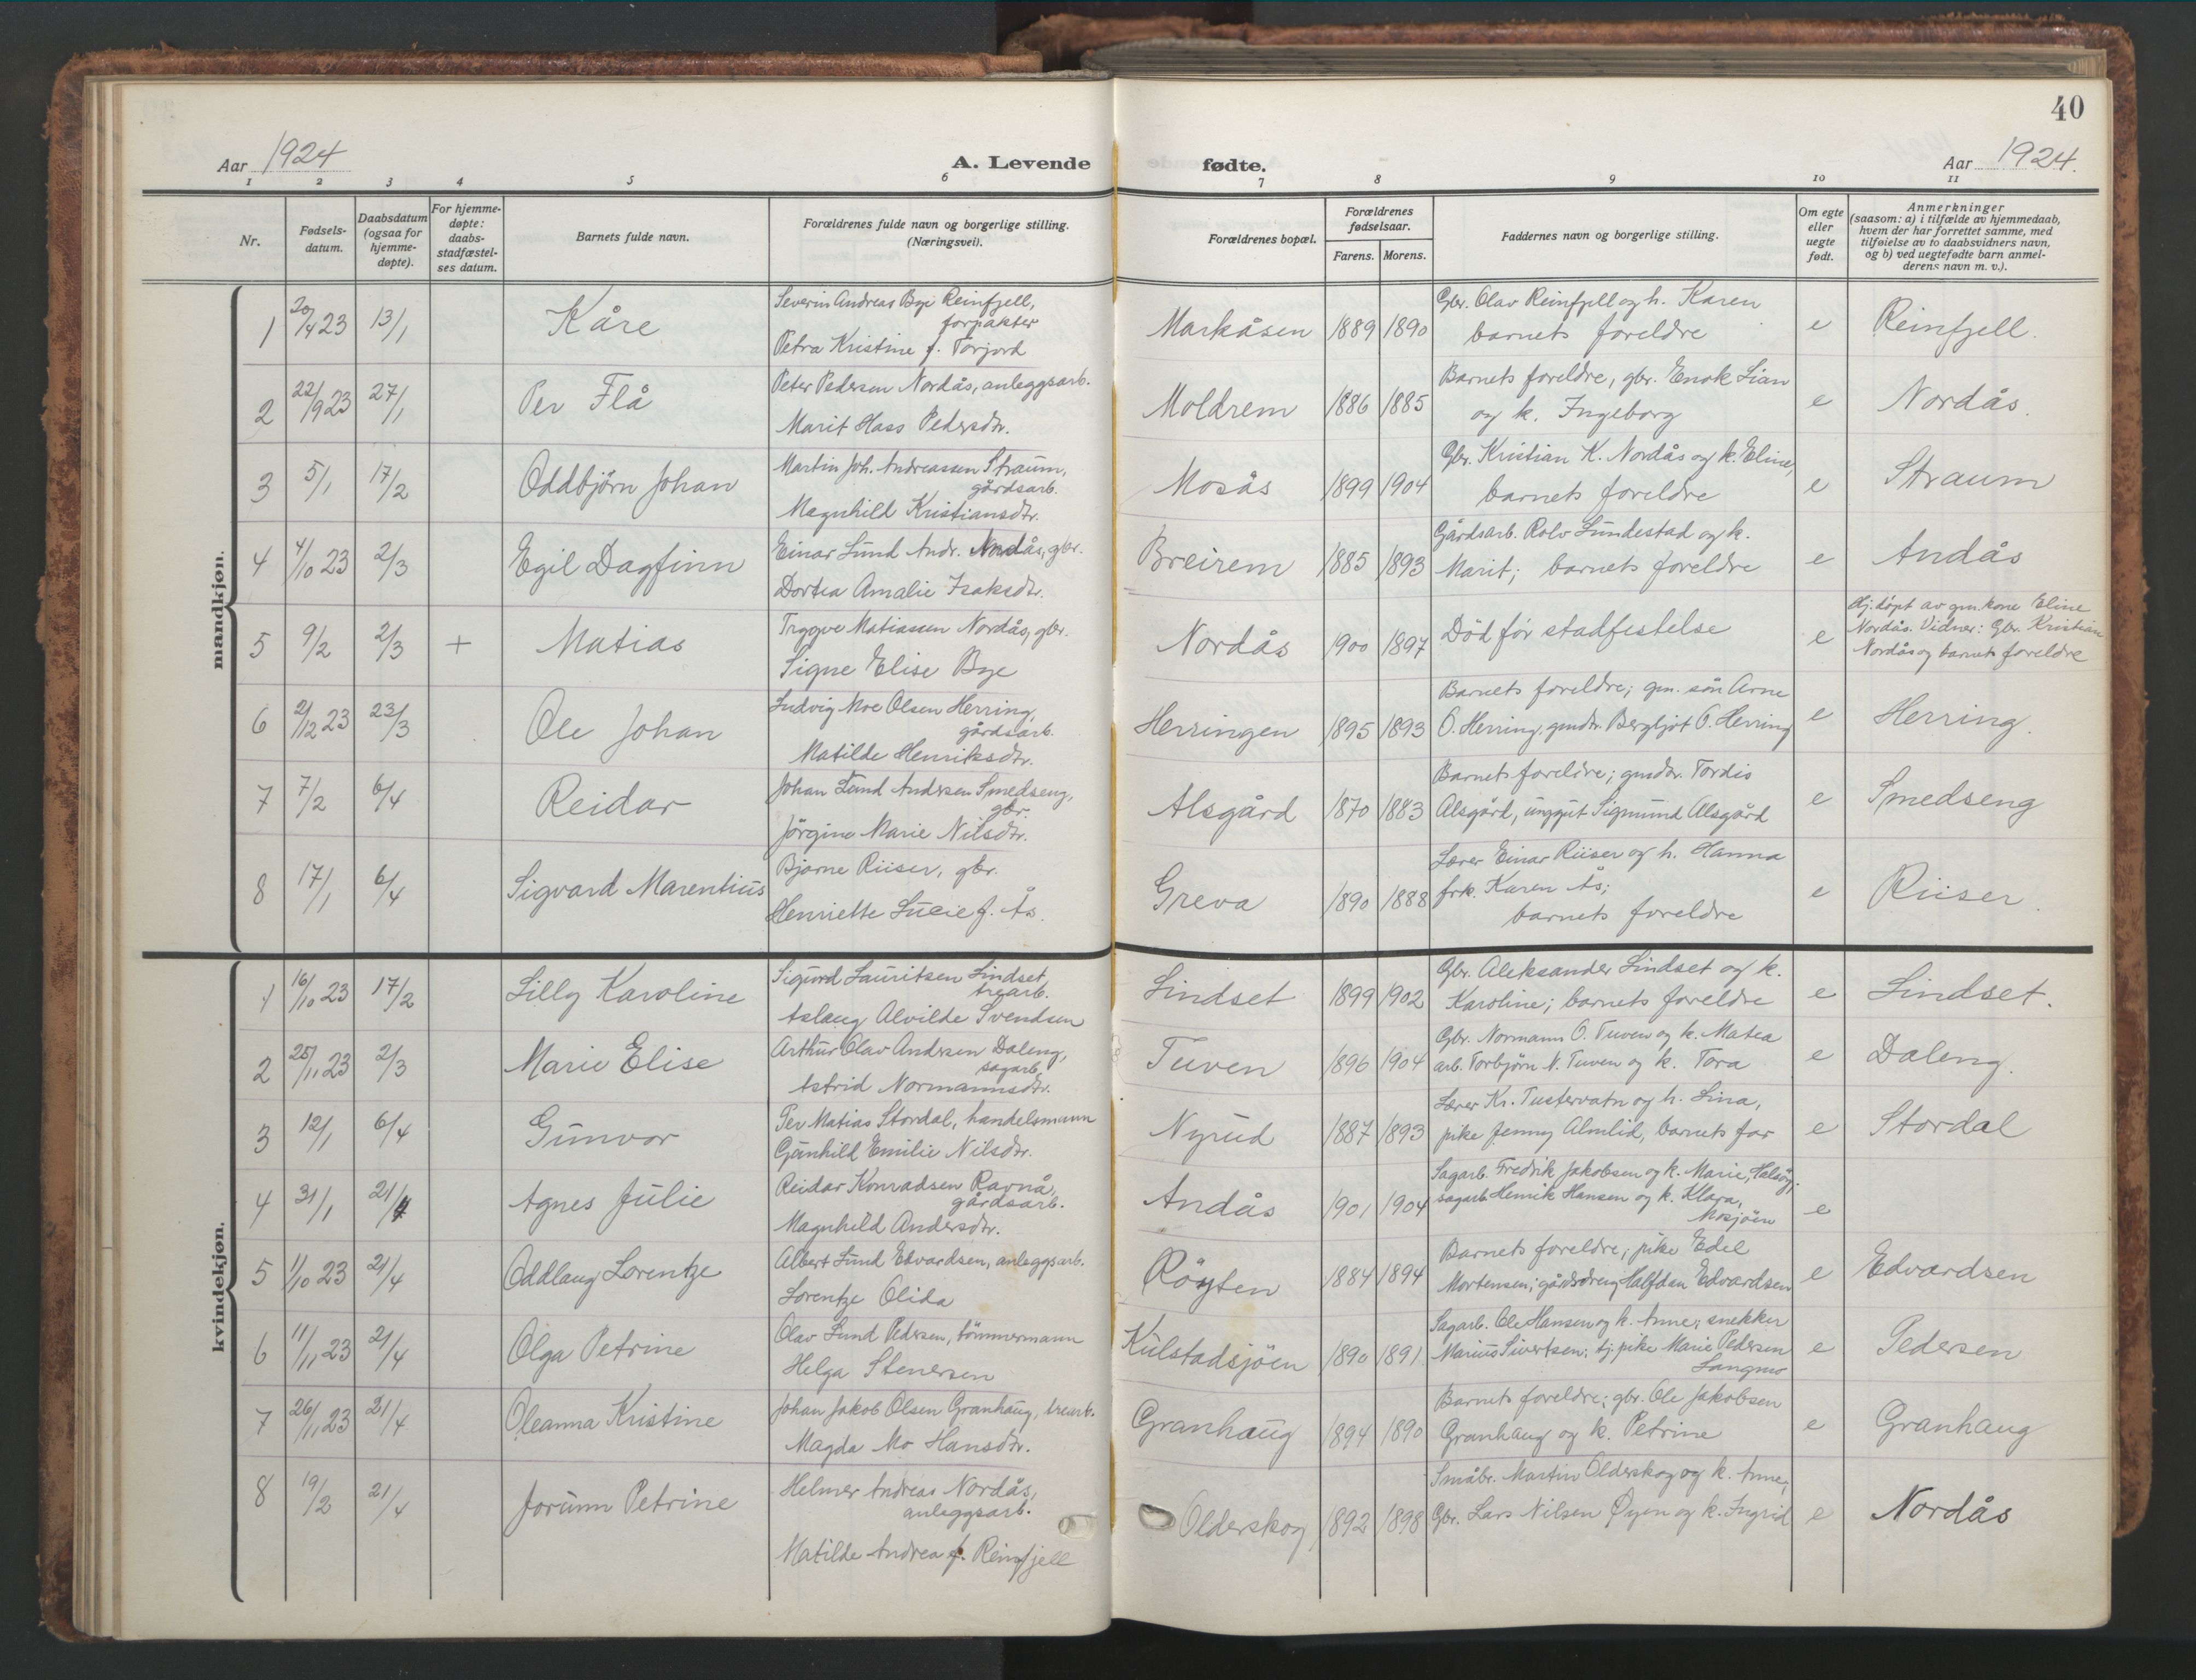 40
Aar 1924
A. Levende
fødte.
Aar 1924.
1 2 3 4 5 6 7 8 9 10 11
Nr.
Fødsels-
datum.
Daabsdatum
(ogsaa for
hjemme-
døpte).
For hjemme-
døpte:
daabs-
stadfæstel-
ses datum.
Barnets fulde navn.
Forældrenes fulde navn og borgerlige stilling.
(Næringsvei).
Forældrenes bopæl.
Forældrenes
fødselsaar.
Farens. Morens.
Faddernes navn og borgerlige stilling.
Om egte
eller
uegte
født.
Anmerkninger
(saasom: a) i tilfælde av hjemmedaab,
hvem der har forrettet samme, med
tilføielse av to daabsvidners navn,
og b) ved uegtefødte barn anmel-
derens navn m. v.).
mandkjøn.
1 20/4 23 13/1 Kåre
Severin Andreas Bye Reinfjell,
forpakter
Petra Kristine f. Torjord
Markåsen 1889 1890
Gbr. Olav Reinfjell og h. Karen
barnets foreldre
e Reinfjell.
2 22/9 23 27/1 Per Flå
Peter Pedersen Nordås, anleggsarb.
Marit Hass Pedersdtr.
Moldrem 1886 1885
Barnets foreldre, gbr. Enok Lian
og k. Ingeborg
e Nordås.
3 5/1 17/2 Oddbjörn Johan
Martin Joh. Andreassen Straum,
gårdsarb.
Magnhild Kristiansdtr.
Mosås 1899 1904
Gbr. Kristian K. Nordås og k. Eline,
barnets foreldre
e Straum
4 4/10 23 2/3 Egil Dagfinn
Einar Lund Andr. Andås, gbr.
Dortea Amalie Isaksdtr.
Breirem 1885 1893
Gårdsarb. Rolv Lundestad og k.
Marit; barnets foreldre
e Andås
5 9/2 2/3 + Matias
Trygve Matiassen Nordås, gbr.
Signe Elise Bye
Nordås 1900 1897
Död för stadfestelse
e
Hj. döpt av gm.kone Eline
Nordås. Vidner: Gbr. Kristian
Nordås og barnets foreldre
6 2/12 23 23/3 Ole Johan
Ludvig Moe Olsen Herring,
gårdsarb.
Matilde Henriksdtr.
Herringen 1895 1893
Barnets foreldre; gm. sön Arne
O. Herring, gmdtr. Bergljot O. Herring
e Herring.
7 7/2 6/4 Reidar
Johan Lund Andersen Smedseng,
gbr.
Jörgine Marie Nilsdtr.
Alsgård 1870 1883
Barnets foreldre; gmdtr. Tordis
Alsgård, unggut Sigmund Alsgård
e Smedseng
8 17/1 6/4 Sigvard Marentius
Bjarne Riiser, gbr.
Henriette Lucie f. Ås.
Greva 1890 1888
Lærer Einar Riiser og h. Hanna
frk. Karen Ås;
barnets foreldre
e Riiser.
kvindekjøn.
1 16/10 23 17/2 Lilly Karoline
Sigurd Lauritsen Lindset
trearb.
Aslaug Alvilde Svendsen
Lindset 1899 1902
Gbr. Aleksander Lindset og k.
Karoline; barnets foreldre
e Lindset.
2 25/11 23 2/3 Marie Elise
Arthur Olav Andersen Daleng,
sagarb.
Astrid Normannsdtr.
Tuven 1896 1904
Gbr. Normann O. Tuven og k. Matea
arb. Torbjörn N. Tuven og k. Tora
e Daleng.
3 12/1 6/4 Gunvor
Per Matias Stordal, handelsmann
Gunhild Emilie Nilsdtr.
Nyrud 1887 1893
Lærer Kr. Tustervatn og h. Lina,
pike Jenny Almlid, barnets far
e Stordal
4 31/1 21/4 Agnes Julie
Reidar Konradsen Ravnå,
gårdsarb.
Magnhild Andersdtr.
Andås 1901 1904
Sagarb. Fredrik Jakobsen og k. Marie, Halsöy;
sagarb. Henrik Hansen og k. Klara,
Mosjöen
e
5 1/10 23 21/4 Oddlaug Lorentze
Albert Lund Edvardsen, anleggsarb.
Lorentze Olida
Röyten 1884 1894
Barnets foreldre; pike Edel
Mortensen; gårdsdreng Halfdan Edvardsen
e Edvardsen
6 11/11 23 21/4 Olga Petrine
Olav Lund Pedersen, tömmermann
Helga Stenersen
Kulstadsjöen 1890 1891
Sagarb. Ole Hansen og k. Anne; snekker
Marius Sivertsen; tj.pike Marie Pedersen
Langmo
e Pedersen
7 26/11 23 21/4 Oleanna Kristine
Johan Jakob Olsen Granhaug, trearb.
Magda Mo Hansdtr.
Granhaug 1894 1890
Barnets foreldre; gbr. Ole Jakobsen
Granhaug og k. Petrine
e Granhaug
8 19/2 21/4 Jorunn Petrine
Helmer Andreas Nordås,
anleggsarb.
Matilde Andrea f. Reinfjell
Olderskog 1892 1898
Småbr. Martin Olderskog og k. Anne;
Gbr. Lars Nilsen Øyen og k. Ingrid
e Nordås